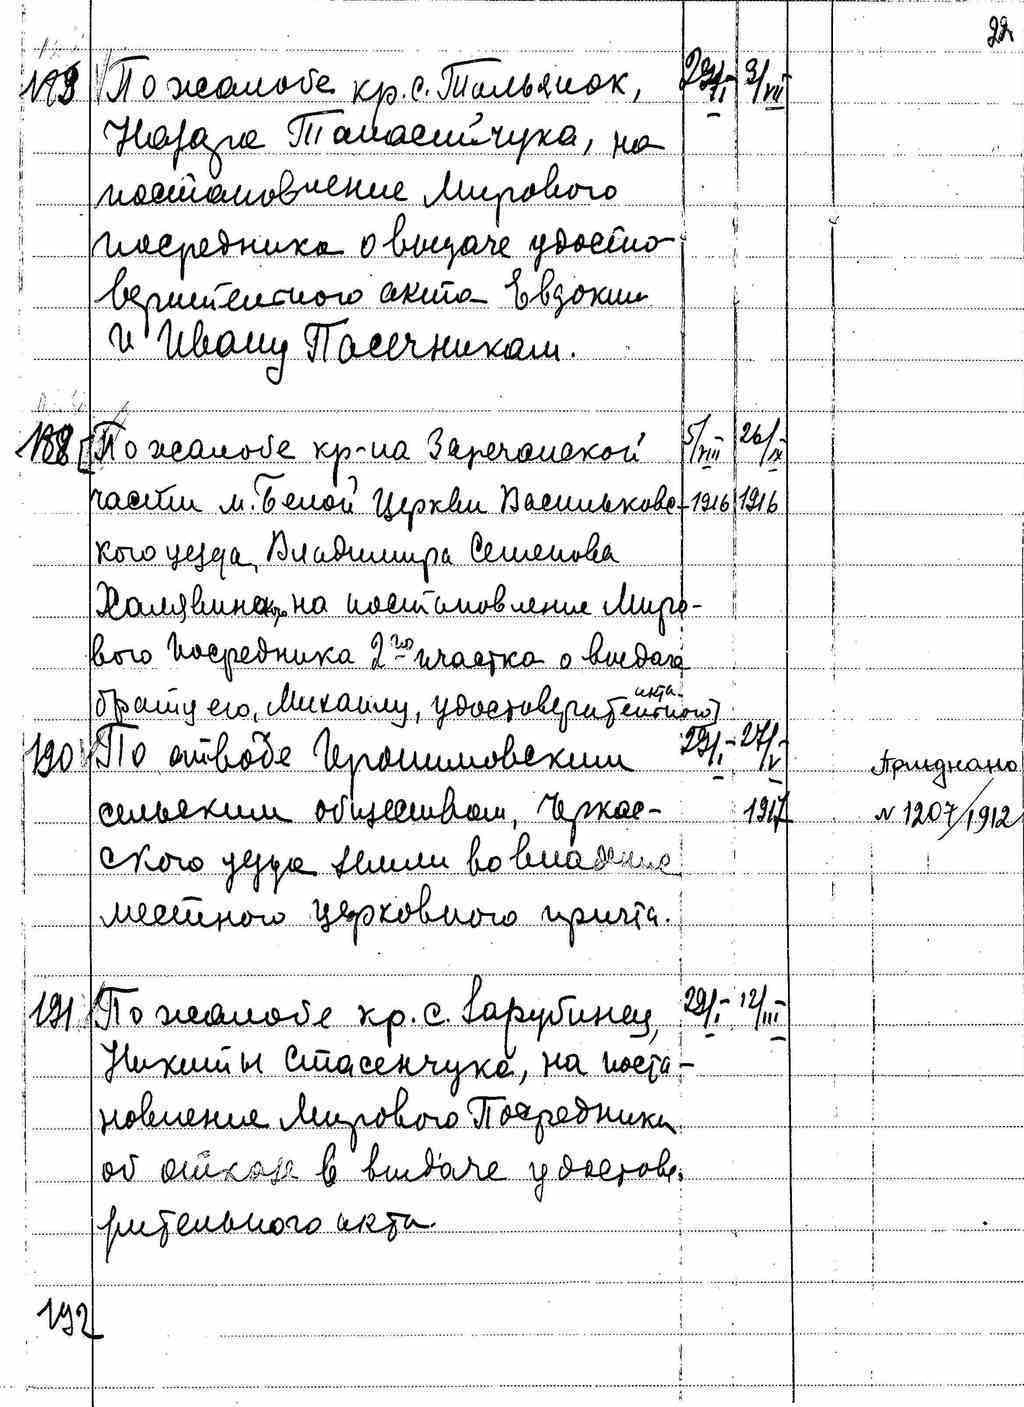 22
189 По жалобе кр. с. Тальянок, 29/I 3/VII
Назара Танасийчука, на
постановление Мирового
посредника о выдаче удосто-
верительного акта Евдокии
и Ивану Пасечникам.
188 [По жалобе кр-на Заречанской 5/VIII 26/IX
части м. Белой Церкви Васильковс- 1916 1916
кого уезда, Владимира Семенова
на постановление Миро-
вого Посредника 2го участка о выдаче
брату его, Михаилу, удостоверительного акта]
190 По отводе Иеронимовским 29/I 27/V
сельским обществом, Черкас- 1917
ского уезда земли во владение
местного церковного причта.
Приднано
N 1207/1912
191 По жалобе кр. с. Зарубинец, 29/I 12/III
Никиты Стасенчука, на поста-
новление Мирового Посредника
об отказе в выдаче удостове-
рительного акта.
192